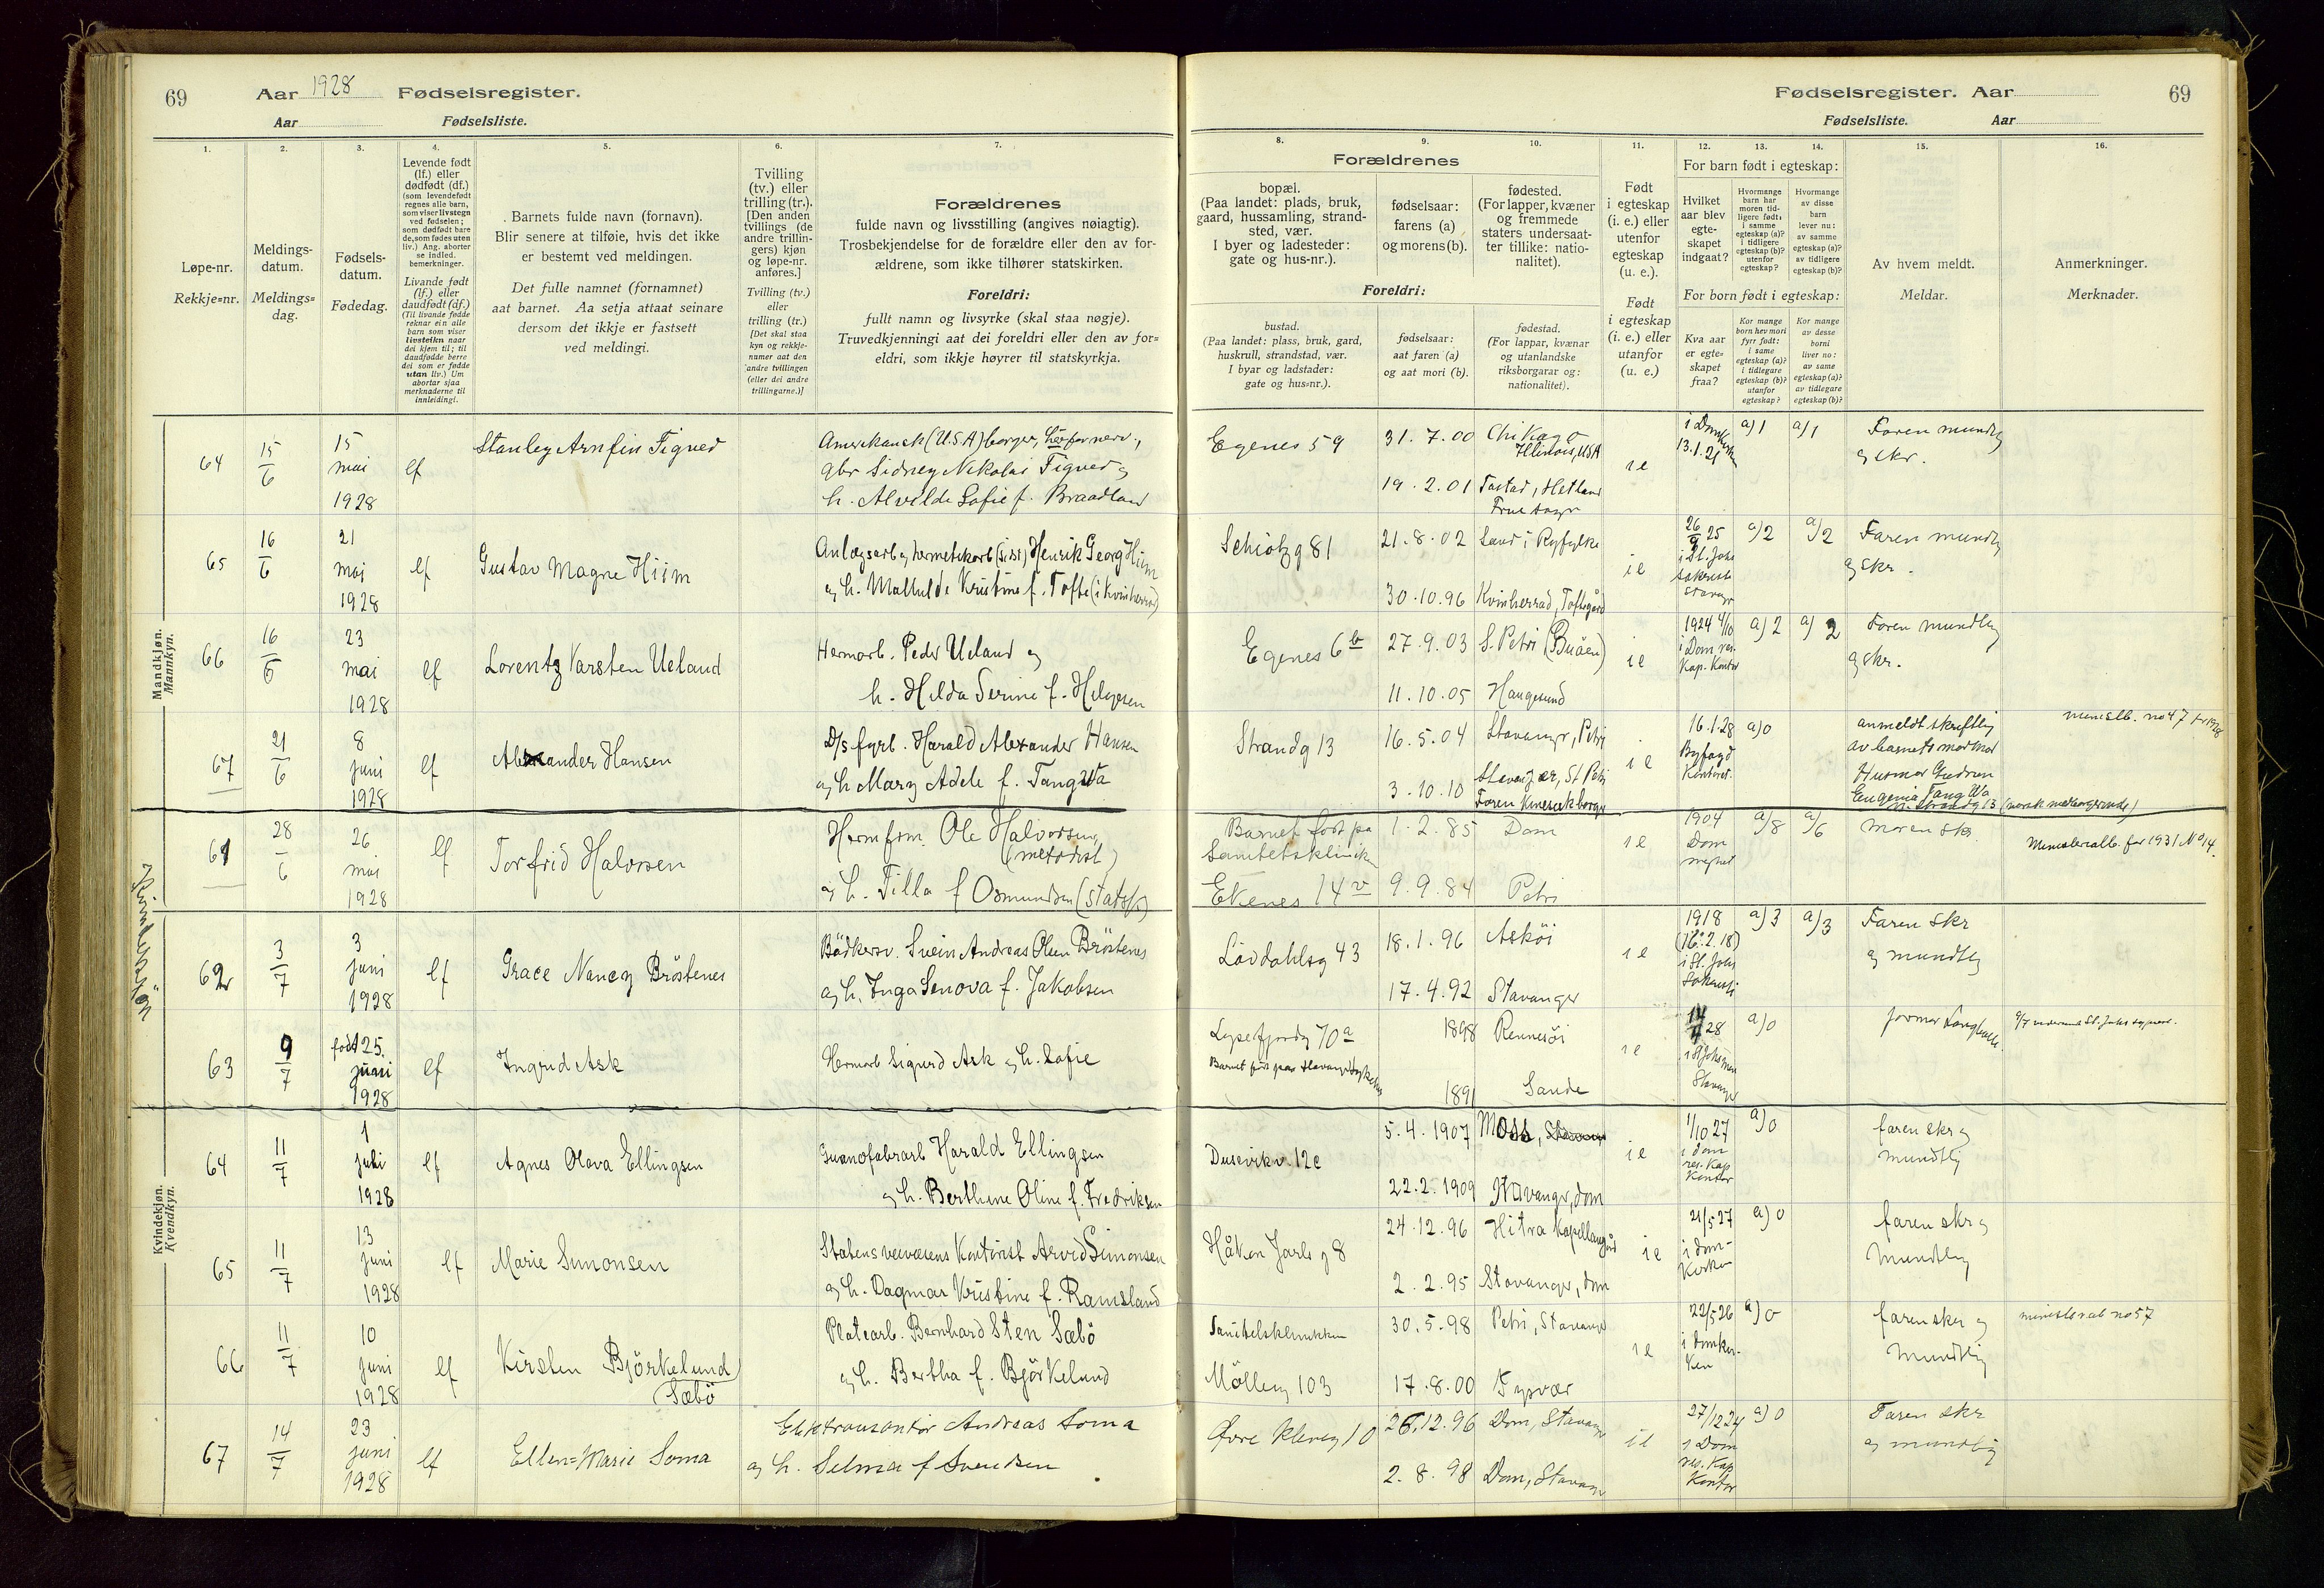 69
Aar 1928
Fødselsregister.
Aar
Fødselsliste.
Fødselsregister. Aar
69
Fødselsliste.
Aar
1.
Løpe-nr.
Rekkje=nr.
2.
Meldings-
datum.
Meldings=
dag.
3.
Fødsels-
datum.
Fødedag.
4.
Levende født
(lf.) eller
dødfødt (df.)
(som levendefødt
regnes alle barn,
som viser livstegn
ved fødselen;
som dødfødt bare
de, som fødes uten
liv.) Ang. aborter
se indled.
bemerkninger.
Livande født
(lf.) eller
daudfødt (df.)
(Til livande fødde
reknar ein alle
barn som viser
livsteikn naar
dei kjem til; til
daudfødde berre
dei som er fødde
utan liv.) Um
abortar sjaa
merknaderne til
innleidingi.
5.
Barnets fulde navn (fornavn).
Blir senere at tilføie, hvis det ikke
er bestemt ved meldingen.
Det fulle namnet (fornamnet)
aat barnet. Aa setja attaat seinare
dersom det ikkje er fastsett
ved meldingi.
6.
Tvilling
(tv.) eller
trilling (tr.).
[Den anden
tvillings (de
andre trillin-
gers) kjøn
og løpe-nr.
anføres.]
Tvilling (tv.)
eller
trilling (tr.)
[Det skal staa
kyn og rekkje-
numer aat den
andre tvillingen
(eller dei andre
trillingarne.)]
7.
Forældrenes
fulde navn og livsstilling (angives nøiagtig).
Trosbekjendelse for de forældre eller den av for-
ældrene, som ikke tilhører statskirken.
Foreldri:
fullt namn og livsyrke (skal staa nøgje).
Truvedkjenningi aat dei foreldri eller den av for=
eldri, som ikkje høyrer til statskyrkja.
Forældrenes
8.
bopæl.
(Paa landet: plads, bruk,
gaard, hussamling, strand-
sted, vær.
I byer og ladesteder:
gate og hus-nr.).
9.
fødselsaar:
farens (a)
og morens (b).
10.
fødested.
(For lapper, kvæner
og fremmede
staters undersaat-
ter tillike: natio-
nalitet).
Foreldri:
bustad.
(Paa landet: plass, bruk, gard,
huskrull, strandstad, vær.
I byar og ladstader:
gate og hus=nr.).
fødselsaar:
aat faren (a)
og aat mori (b).
fødestad.
(For lappar, kvænar
og utanlandske
riksborgarar og:
nationalitet).
11.
Født
i egteskap
(i. e.) eller
utenfor
egteskap
(u. e.).
Født
i egteskap
(i. e.) eller
utanfor
(u. e.)
For barn født i egteskap:
12.
Hvilket
aar blev
egte-
skapet
indgaat?
13.
Hvormange
barn har
moren tid-
ligere født:
i samme
egteskap (a)?
i tidligere
egteskap (b)?
utenfor
egteskap?
14.
Hvormange
av disse
barn
lever nu:
av samme
egteskap (a)?
av tidligere
egteskap (b)?
For born født i egteskap:
Kva aar
er egte=
skapet
fraa?
Kor mange
born hev mori
fyrr født:
i same
egteskap (a)?
i tidlegare
egteskap (b)?
utanfor
egteskap?
Kor mange
av desse
borni
liver no:
av same
egteskap (a)?
av tidlegare
egteskap (b)?
15.
Av hvem meldt.
Meldar.
16.
Anmerkninger.
Merknader.
Mandkjøn.
Mannkyn.
64
15/6
15
mai
1928
lf
Stanley Arnfin Figved
Amerikansk (U.S.A) borger,
gbr Sidney Nikolai Figved og
h. Alvilde Sofie f. Braadland
Egenes 59
31.7.00
Chikago
Illinois, USA
19.2.01
Tastad, Hetland
Frue sogn
i e
i Domkirken
13.1.21
a) 1
a) 1
Faren mundtlig
og skr.
65
16/6
21
mai
1928
lf
Gustav Magne Hiim
Anlægsarb og hermetikarb (sist) Henrik Georg Hiim
og h. Mathilde Kristine f. Tofte (i Kvinherred)
Schiøtzg 81
21.8.02
Sand i Ryfylke
30.10.96
Kvinherrad, Toftegård
i e
26/9 25
i St. Joh.
sakristi
Stavanger
a) 2
a) 2
Faren mundtlig
og skr.
66
16/6
23
mai
1928
lf
Lorentz Karsten Ueland
Hermarb. Peder Ueland og
h. Hilda Serine f. Helgesen
Egenes 6 b
27.9.03
S. Petri (Buåen)
11.10.05
Haugesund
i e
1924 4/10
i Dom res.
Kap. Kontor
a) 2
a) 2
Faren mundtlig
og skr.
67
21/6
8
juni
1928
lf
Alexander Hansen
D/s fyrb. Harald Alexander Hansen
og h Mary Adele f. Tangwa
Strandg 13
16.5.04
Stavanger, Petri
3.10.10
Stavanger, St Petri
Faren kinesisk borger
i e
16.1.28
Byfogd
Kontoret
a) 0
anmeldt skriftlig
av barnets mormor
Husmor Gudrun
Eugenia Tangwa
n. Strandg 13 (norsk medborgerinde)
ministb. no 47 for 1928
Kvindekjøn
61
28/6
26
mai
1928
lf
Torfrid Halvorsen
Hermfrm. Ole Halvorsen,
(metodist)
og h. Tilla f Osmundsen (Statsk)
Barnet født på
Sanitetsklinikken
Ekenes 14 v
1.2.85
Dom
9.9.84
Petri
i e
1904
Dom
sognet
a/8
a/6
Moren skr
Ministerialb. for 1931 No 14.
62
3/7
3
juni
1928
lf
Grace Nancy Bröstenes
Bödkersv. Svein Andreas Olsen Bröstenes
og h. Inga Senova f. Jakobsen
Lövdahlsg 43
18.1.96
Askøi
17.4.92
Stavanger
i e
1918
(16.2.18)
i St. Johs
Sakristi
a) 3
a) 3
Faren skr
og mundtlig
63
9/7
født 25.
juni
1928
lf
Ingrid Ask
Hermarb Sigurd Ask og h. Sofie
Lysefjordg 70 a
Barnet født paa Stavanger sykehus
1898
Rennesöi
1891
Sande
i e
28
i St Johannes
Stavanger
a) 0
jormor
Kvindekjøn.
Kvendkyn.
64
11/7
1
juli
1928
lf
Agnes Olava Ellingsen
Guanofabrarb Harald Ellingsen
og h. Berthine Oline f. Fredriksen
Dusevikv. 12 c
5.4.1907
Moss,
22.2.1909
Stavanger, dom
i e
1/10 27
i dom
res. Kap
Kontor
a) 0
faren skr og
mundtlig
65
11/7
13
juni
1928
lf
Marie Simonsen
Statens veivæsens Kontorist Arvid Simonsen
og h. Dagmar Kristine f. Ramsland
Håkon Jarls g 8
24.12.96
Hitra Kapellangård
2.2.95
Stavanger, dom
i e
21/5 27
i dom-
kirken
a) 0
faren skr og
mundtlig
66
11/7
10
juni
1928
lf
Kirsten Björkelund
Sæbö
Platearb. Bernhard Sten Sæbö
og h. Bertha f. Björkelund
Sanitetsklinikken
Mölleg 103
30.5.98
Petri, Stavanger
17.8.00
Tysvær
i e
22/5 26
i domkir-
ken
a) 0
faren skr og
mundtlig
ministerialb no 57
67
14/7
23
juni
1928
lf
Ellen=Marie Soma
Elektromontör Andreas Soma
og h. Selma f Svendsen
Øvre Kleveg 10
26.12.96
Dom, Stavanger
2.8.98
Dom, Stavanger
i e
27/12 24
i Dom
res. Kap
Kontor
a) 0
Faren skr
og mundtlig